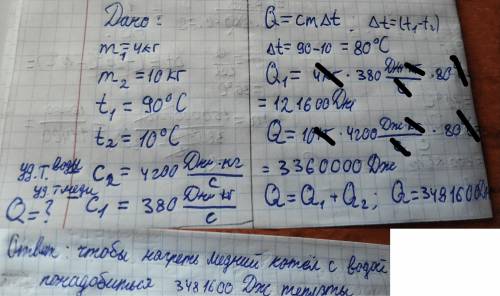 Дано:
m₁=4кг
m₂=10кг
t₁=90°C
t₂=10°C
уд.т.воды C₂=4200 Дж·кг/с
уд.т.меди C₁=380 Дж·кг/с
Q=?
Q=cmΔt; Δt=(t₁-t₂)
Δt=90-10=80°C
Q₁=4кг·380 Дж·кг/с·80
=121600Дж
Q=10кг·4200 Дж·кг/с·80
=3360000 Дж
Q=Q₁+Q₂; Q=3481600
Ответ: чтобы нагреть медний котёл с водой
понадобиться 3481600 Дж теплоты